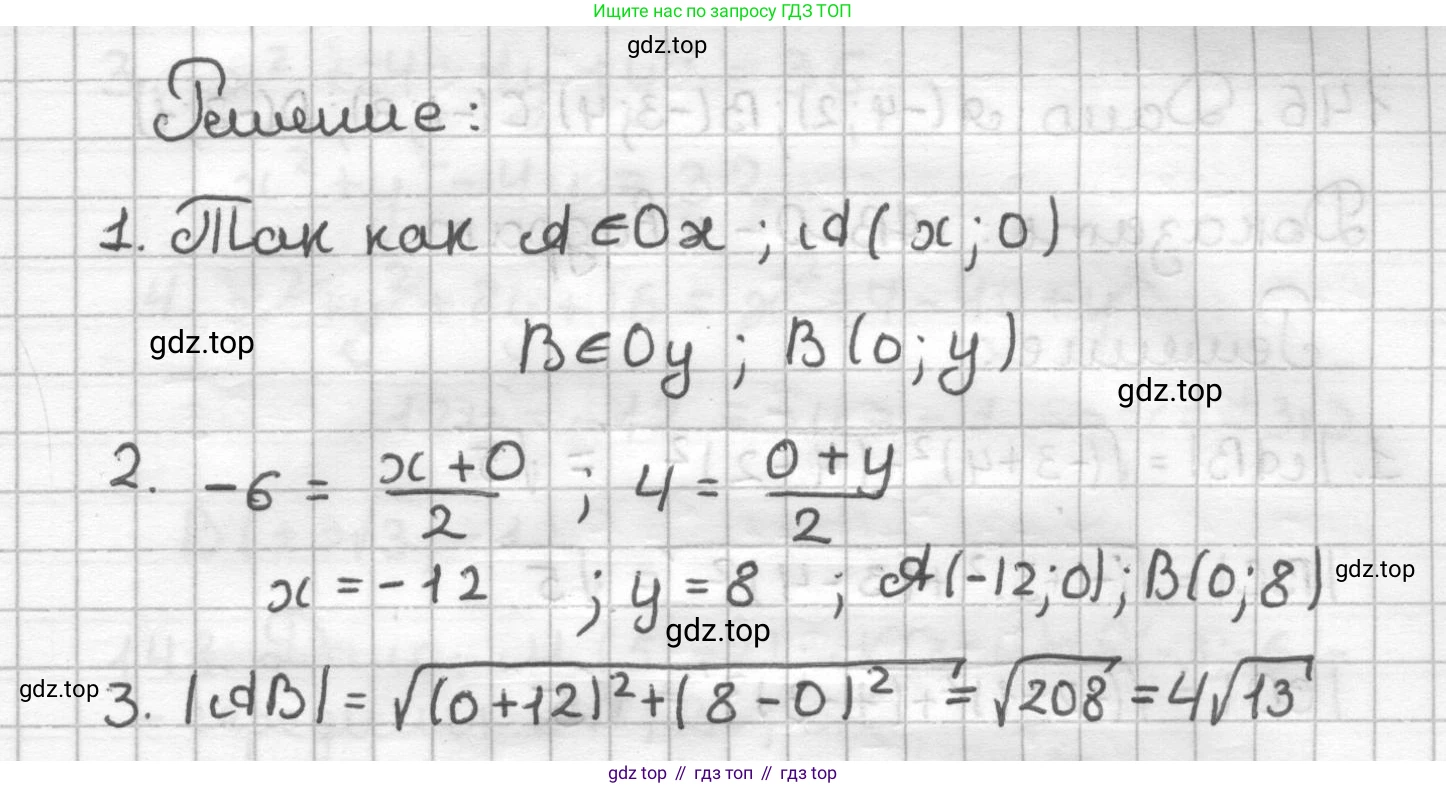 Ищите нас по запросу ГДЗ ТОП
gdz.top
Решение:
1. Так как A∈Ox ; A(x;0)
gdz.top
B∈Oy ; B(0;y)
gdz.top
2. -6 = (x+0)/2 ; 4 = (0+y)/2
x = -12 ; y = 8 ; A(-12;0); B(0;8)
gdz.top
gdz.top
gdz.top
3. |AB| = √((0+12)²+(8-0)²) = √208 = 4√13
gdz top // гдз топ // гдз top